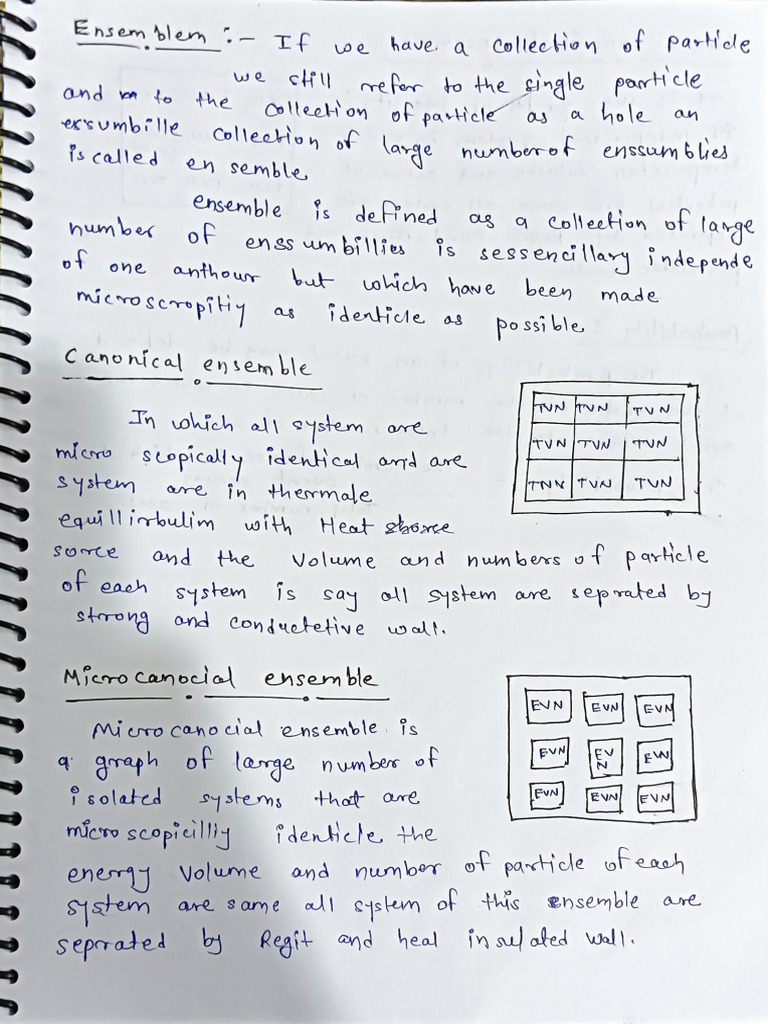 Ensemblem :- If we have a collection of particle
we still refer to the single particle
and to the collection of particle as a hole an
essumbille collection of large number of enssumblies
is called en semble
ensemble is defined as a collection of large
number of enssumbillies is sessencillary independe
of one anthour but which have been made
microscropitiy as identicle as possible
Canonical ensemble
In which all system are
micro scopically identical and are
system are in thermale
equillirbulim with Heat
sorce and the volume and numbers of particle
of each system is say all system are seprated by
strong and conductetive wall.
TVN TVN TVN
TVN TVN TVN
TNN TVN TVN
Microcanocial ensemble
Microcanocial ensemble is
a graph of large number of
isolated systems that are
microscopicilliy identicle the
energy volume and number of particle of each
system are same all system of this ensemble are
seprated by Regit and heal insulated wall.
EVN EVN EVN
EVN EVN EVN
EVN EVN EVN